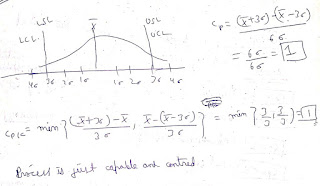 LSL x̄ USL
LCL UCL
4σ 3σ 2σ 1σ 1σ 2σ 3σ 4σ
Cp = (x̄+3σ)-(x̄-3σ) / 6σ
= 6σ / 6σ = 1
Cpk = min { (x̄+3σ)-x̄ / 3σ , x̄-(x̄-3σ) / 3σ } = min { 3/3 , 3/3 } = 1
Process is just capable and